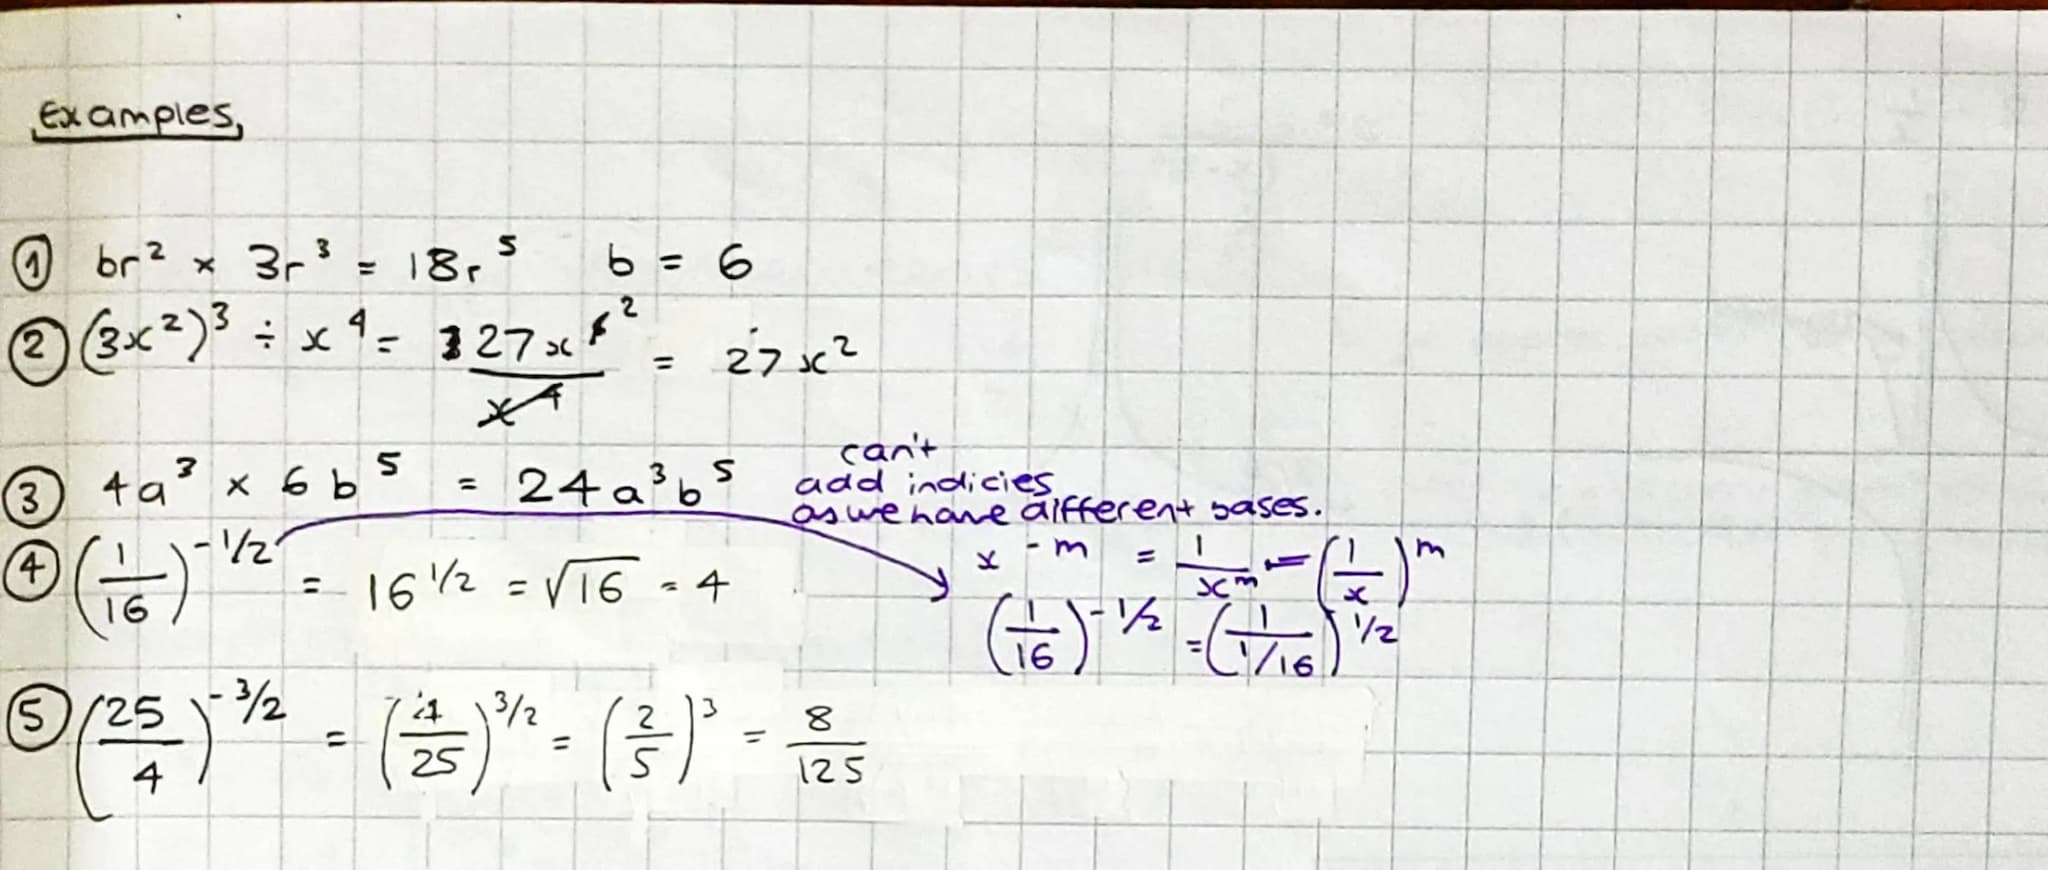 Examples,
① br² × 3r³ = 18r⁵ b = 6
② (3x²)³ ÷ x⁴ = 27x⁶ ² / x⁴ = 27x²
③ 4a³ × 6b⁵ = 24a³b⁵ can't add indicies as we have different bases.
④ (1/16)^-1/2 = 16^1/2 = √16 = 4
x^-m = 1/x^m = (1/x)^m
(1/16)^-1/2 = (1/1/16)^1/2
⑤ (25/4)^-3/2 = (4/25)^3/2 = (2/5)³ = 8/125